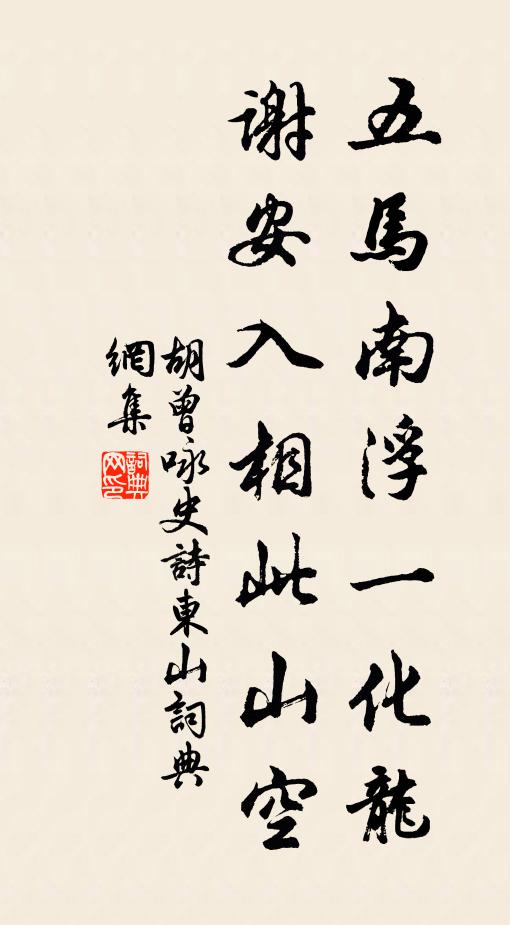 五馬南浮一化龍
謝安入相此山空
胡曾咏史詩東山詞典
網集
詞典
网印